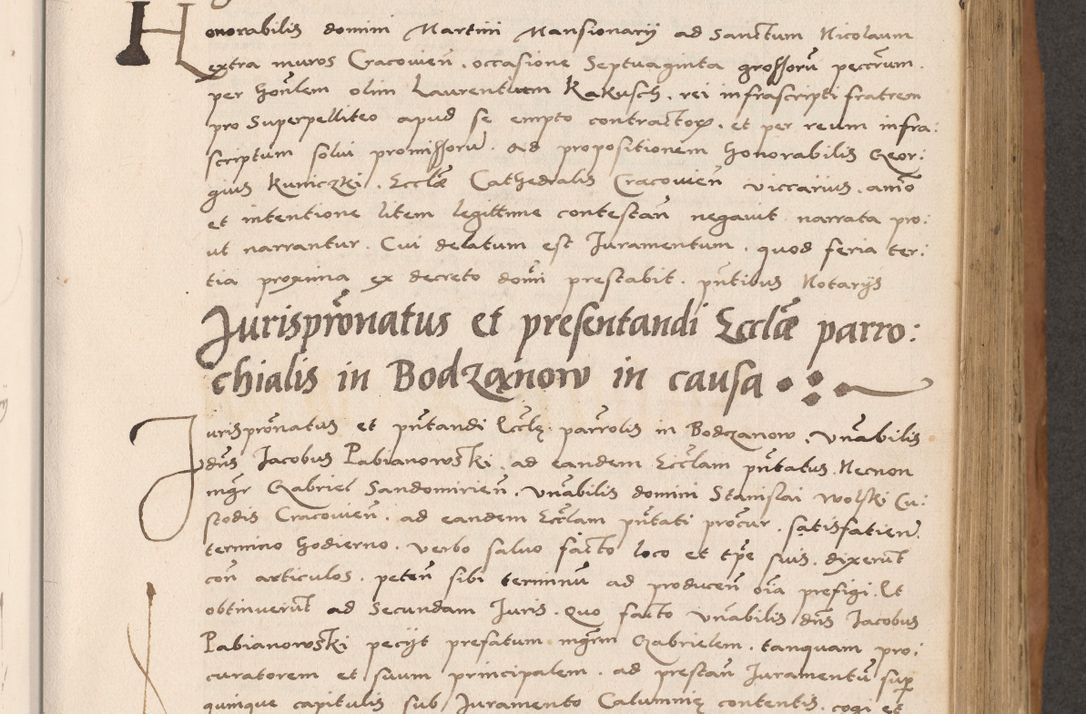 Honorabilis domini Martini Mansionarij ad Sanctum Nicolaum
extra muros Cracovień. occasione Septuaginta grossorū peccrum.
per honlem olim Laurentium Kakusch. rei infrascripti fratrem
pro Superpelliteo apud se empto contractorum. et per reum infra:
scriptum solui promissorū. Ad propositionem honorabilis Geor:
gius Kuniczki. Ecclæ Cathedralis Cracovień viccarius. animo
et intentione litem legittime contestań negavit narrata pro:
ut narrantur. Cui delatum est Juramentum. quod feria ter:
tia proxima ex decreto domi prestabit. pntibus Notarijs
Jurispronatus et presentandi Ecclæ parro:
chialis in Bodzanow in causa
Jurispronatus et pntandi Ecclę parrolis in Bodczanow. Vnabilis
dns Jacobus Pabianowski. ad eandem Ecclam pntatus. Necnon
mgr Gabriel Sandomirień. Vnabilis domini Stanislai Wolski Cu:
stodis Cracovień. ad eandem Ecclam pntati procur. satisfacień.
termino hodierno. verbo salvo facto loco et tpe suis. dixerūt
con articulos. peteń sibi terminū ad produceń oia prefigi. Et
obtinuerūt ad Secundam Juris. Quo facto Vnabilis dns Jacobus
Pabianowski pecijt prefatum mgrm Gabrielem. tanquam pro:
curatorem et suum principalem. ad prestań Juramentū sup
quinque capitulis sub Juramento Calumnię contentis. cogi et